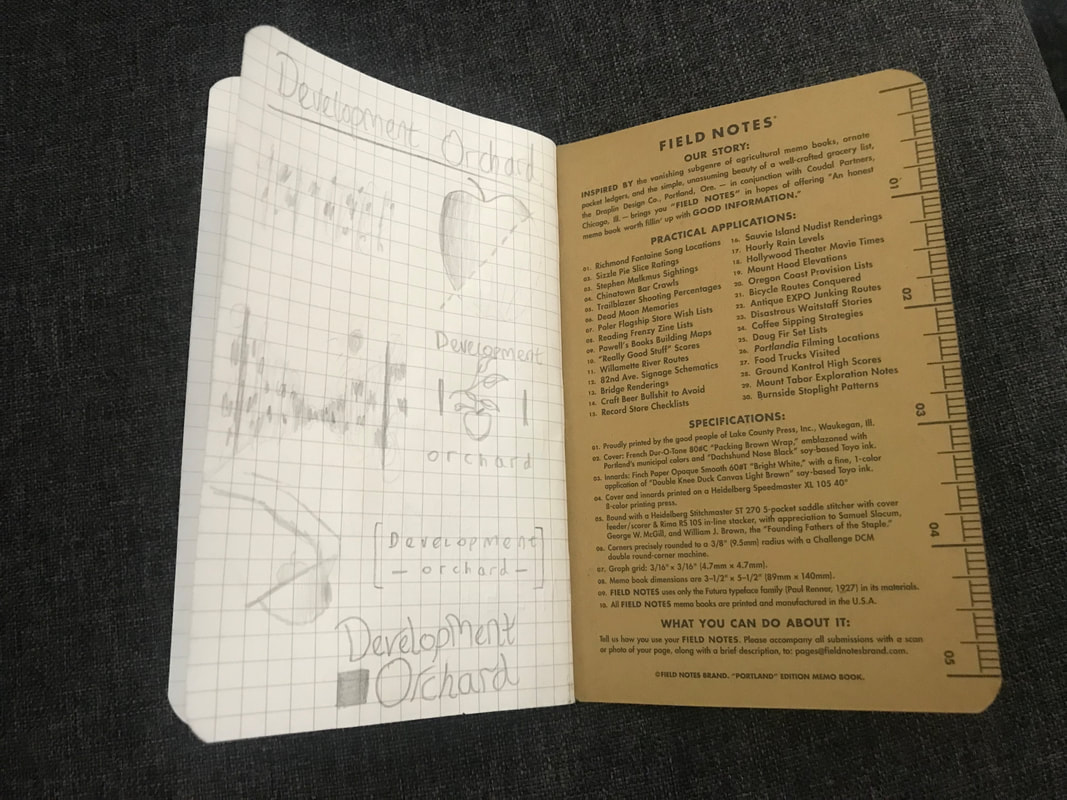 Development Orchard
Development
orchard
Development
– orchard –
Development
Orchard
FIELD NOTES
OUR STORY:
INSPIRED BY the vanishing subgenre of agricultural memo books, ornate
pocket ledgers, and the simple, unassuming beauty of a well-crafted grocery list,
the Draplin Design Co., Portland, Ore. — in conjunction with Coudal Partners,
Chicago, Ill. — brings you “FIELD NOTES” in hopes of offering “An honest
memo book worth fillin’ up with GOOD INFORMATION.”
PRACTICAL APPLICATIONS:
01. Richmond Fontaine Song Locations
02. Sizzle Pie Slice Ratings
03. Stephen Malkmus Sightings
04. Chinatown Bar Crawls
05. Trailblazer Shooting Percentages
06. Dead Moon Memories
07. Poler Flagship Store Wish Lists
08. Reading Frenzy Zine Lists
09. Powell’s Books Building Maps
10. “Really Good Stuff” Scores
11. Willamette River Routes
12. 82nd Ave. Signage Schematics
13. Bridge Renderings
14. Craft Beer Bullshit to Avoid
15. Record Store Checklists
16. Sauvie Island Nudist Renderings
17. Hourly Rain Levels
18. Hollywood Theater Movie Times
19. Mount Hood Elevations
20. Oregon Coast Provision Lists
21. Bicycle Routes Conquered
22. Antique EXPO Junking Routes
23. Disastrous Waitstaff Stories
24. Coffee Sipping Strategies
25. Doug Fir Set Lists
26. Portlandia Filming Locations
27. Food Trucks Visited
28. Ground Kontrol High Scores
29. Mount Tabor Exploration Notes
30. Burnside Stoplight Patterns
SPECIFICATIONS:
01. Proudly printed by the good people of Lake County Press, Inc., Waukegan, Ill.
02. Cover: French Dur-O-Tone 80#C “Packing Brown Wrap,” emblazoned with
Portland’s municipal colors and “Dachshund Nose Black” soy-based Toyo ink.
03. Innards: Finch Paper Opaque Smooth 60#T “Bright White,” with a fine, 1-color
application of “Double Knee Duck Canvas Light Brown” soy-based Toyo ink.
04. Cover and innards printed on a Heidelberg Speedmaster XL 105 40"
8-color printing press.
05. Bound with a Heidelberg Stitchmaster ST 270 5-pocket saddle stitcher with cover
feeder/scorer & Rima RS 10S in-line stacker, with appreciation to Samuel Slocum,
George W. McGill, and William J. Brown, the “Founding Fathers of the Staple.”
06. Corners precisely rounded to a 3/8" (9.5mm) radius with a Challenge DCM
double round-corner machine.
07. Graph grid: 3/16" x 3/16" (4.7mm x 4.7mm).
08. Memo book dimensions are 3-1/2" x 5-1/2" (89mm x 140mm).
09. FIELD NOTES uses only the Futura typeface family (Paul Renner, 1927) in its materials.
10. All FIELD NOTES memo books are printed and manufactured in the U.S.A.
WHAT YOU CAN DO ABOUT IT:
Tell us how you use your FIELD NOTES. Please accompany all submissions with a scan
or photo of your page, along with a brief description, to: pages@fieldnotesbrand.com.
©FIELD NOTES BRAND. “PORTLAND” EDITION MEMO BOOK.
01
02
03
04
05